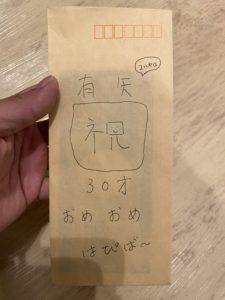 有矢
祝
30才
おめおめ
はぴば~